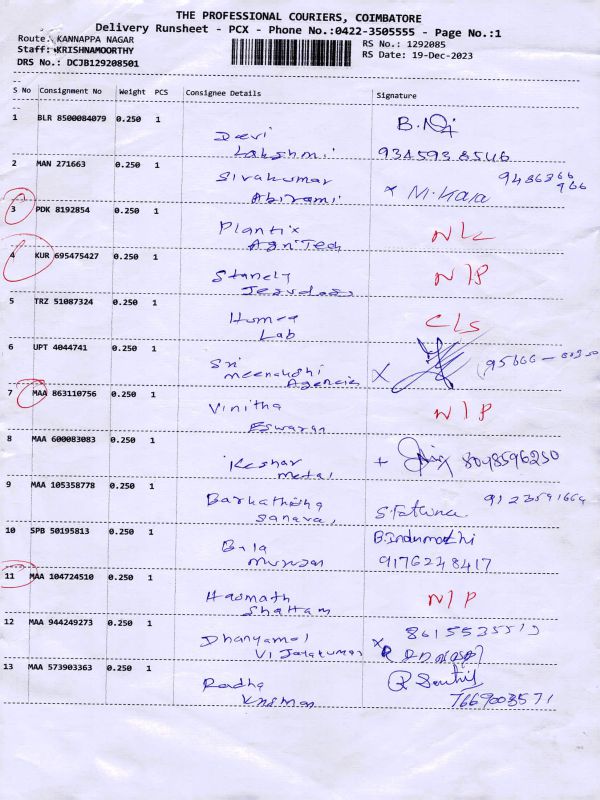 THE PROFESSIONAL COURIERS, COIMBATORE
Delivery Runsheet - PCX - Phone No.:0422-3505555 - Page No.:1
Route: KANNAPPA NAGAR
Staff: KRISHNAMOORTHY
DRS No.: DCJB129208501
RS No.: 1292085
RS Date: 19-Dec-2023
S No Consignment No Weight PCS Consignee Details Signature
1 BLR 8500084079 0.250 1
Devi
Lakshmi
2 MAN 271663 0.250 1
Sivakumar
Abirami
M. Kala
3 PDK 8192854 0.250 1
Plantix
AgriTech
NLC
4 KUR 695475427 0.250 1
Stanely
N/P
5 TRZ 51087324 0.250 1
Lab
CLS
6 UPT 4044741 0.250 1
Sri
Meenakshi
Agencies
7 MAA 863110756 0.250 1
Vinitha
Eswaran
N/P
8 MAA 600083083 0.250 1
Keshar
Metal
8048596250
9 MAA 105358778 0.250 1
S. Fathima
10 SPB 50195813 0.250 1
Bala
Murugan
B. Indumathi
9176248417
11 MAA 104724510 0.250 1
Hasmath
N/P
12 MAA 944249273 0.250 1
Dhanyamol
Vijayakumar
13 MAA 573903363 0.250 1
Radha
7669003571